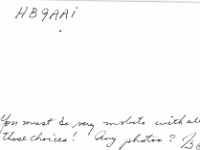 HB9AAi
You must be very mobile with all
those choices! Any photos?